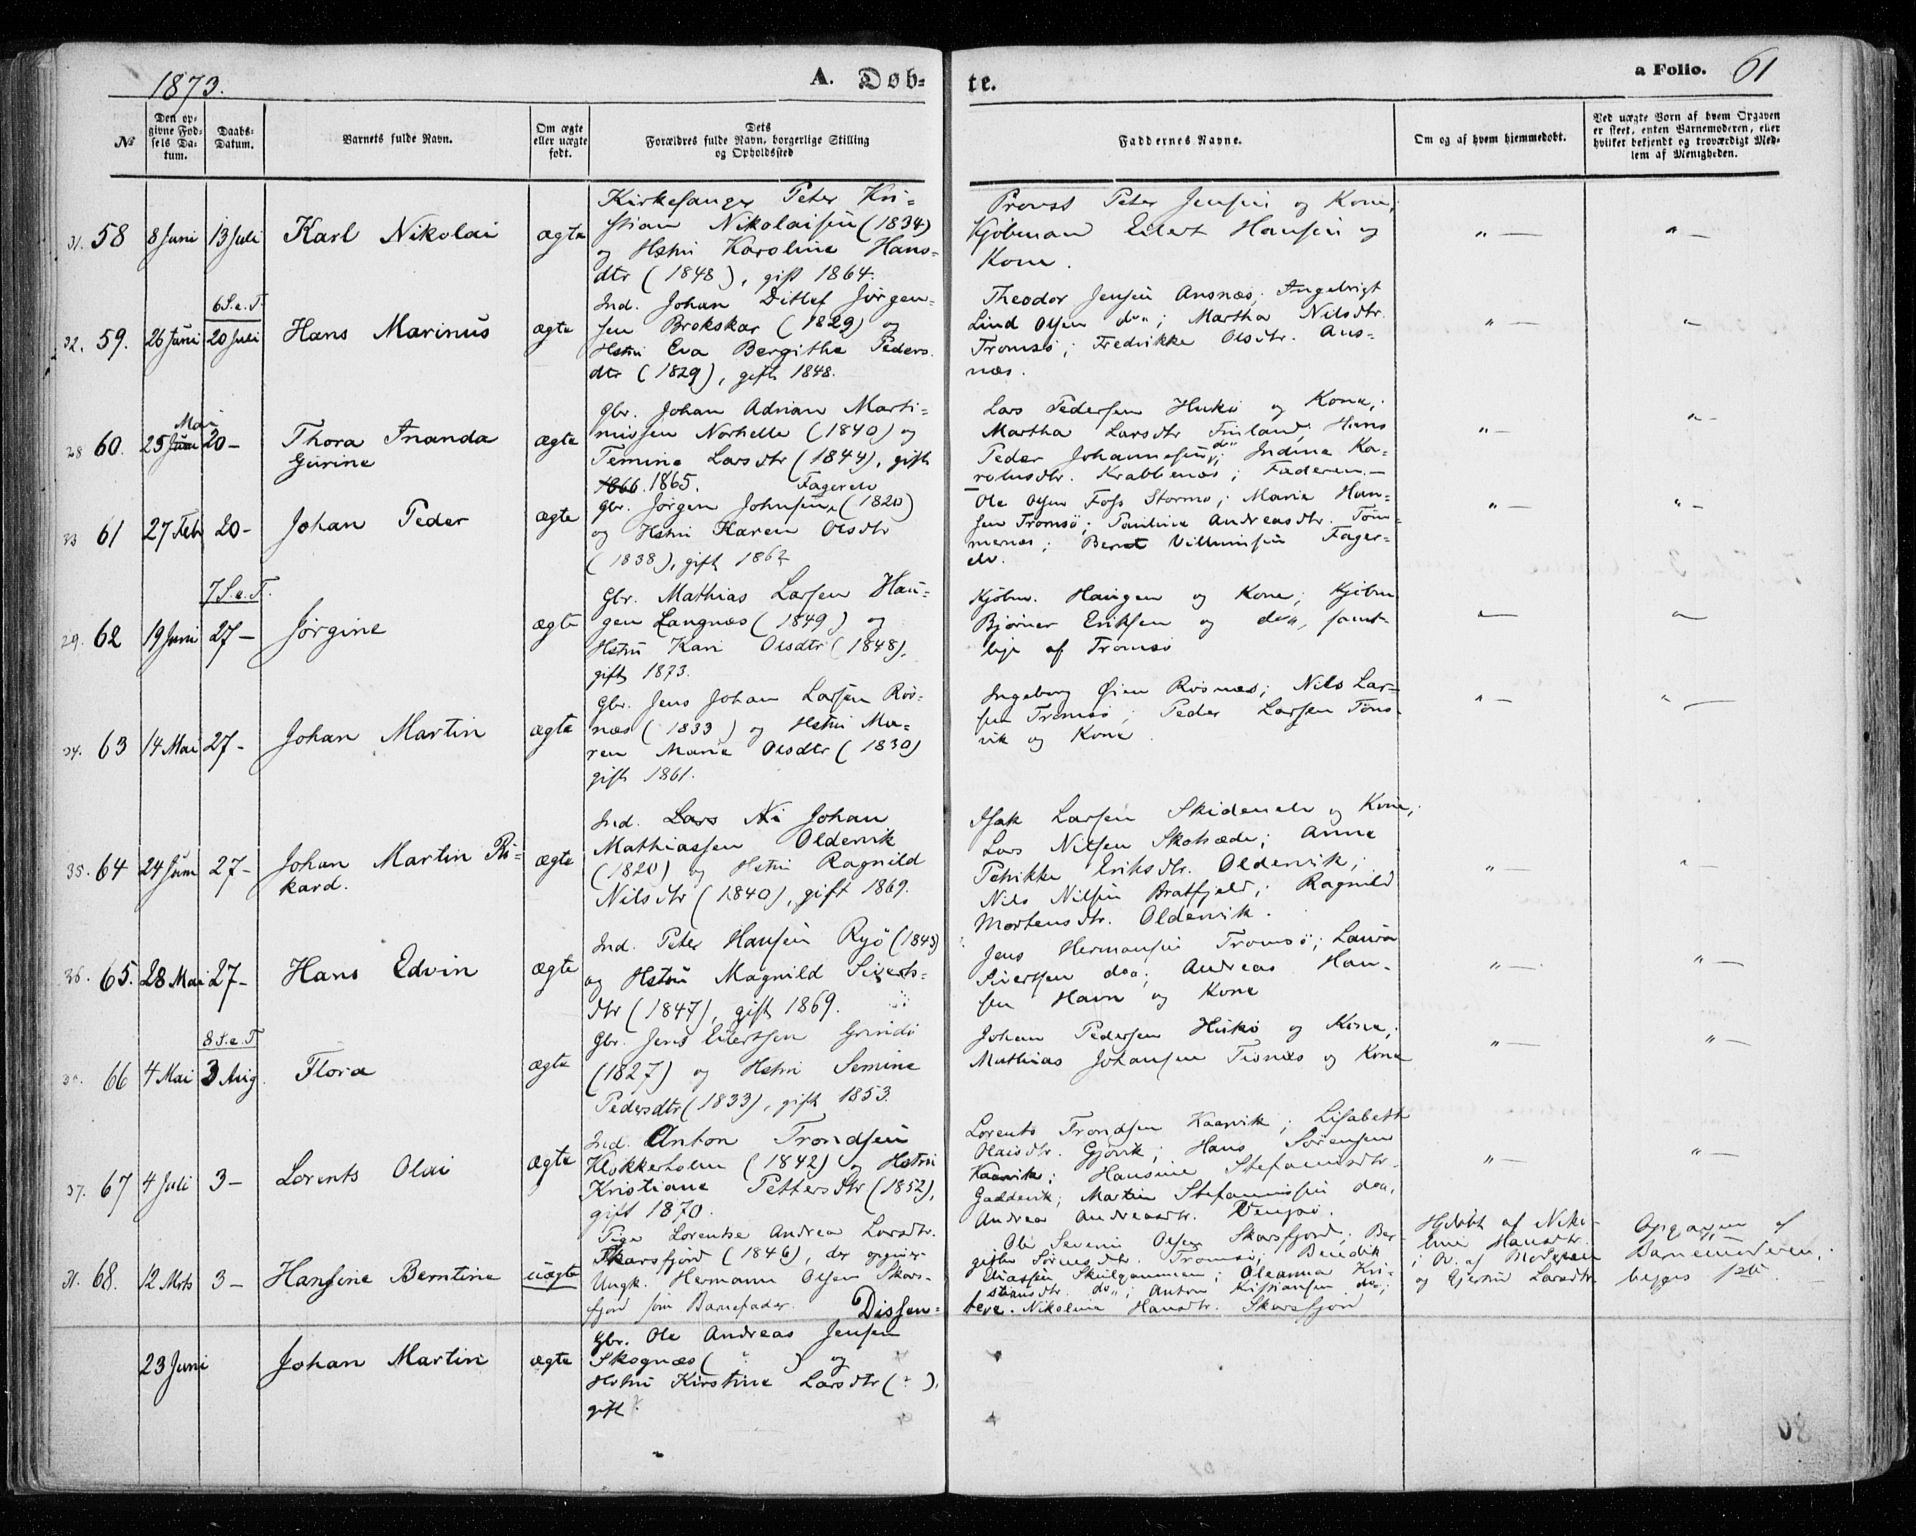 1873.
A. Døb-
te.
a Folio. 61
No
Den opgivne Fødsels Datum.
Daabs-Datum.
Barnets fulde Navn.
Om ægte eller uægte født.
Dets Forældres fulde Navn, borgerlige Stilling og Opholdssted
Faddernes Navne.
Om og af hvem hjemmedøbt.
Ved uægte Børn af hvem Opgaven er skeet, enten Barnemoderen, eller hvilket bekjendt og troværdigt Medlem af Menigheden.
31. 58 8 Juni 13 Juli Karl Nikolai ægte
Kirkesanger Peter Kri-
stian Nikolaisen (1834)
og Hstru Karoline Hans-
dtr (1848), gift 1864.
Provst Peter Jensen og Kone;
Kjøbmand Eilert Hansen og
Kone.
" — " —
6 S. e. T.
32. 59. 26 Juni 20 Juli Hans Marinus ægte
Ind. Johan Ditlef Jørgen-
sen Brokskar (1829) og
Hstru Eva Bergithe Peders
dtr (1829), gift 1848.
Theodor Jensen Ansnæs; Ingebrigt
Lind Olsen do"; Martha Nilsdtr.
Tromsø; Fredrikke Olsdtr. Ans-
næs.
" — " —
28 60. 25 Juni Mai 20 — Thora Inanda
Gurine ægte
Gbr. Johan Adrian Marti-
nussen Norhella (1840) og
Temine Larsdtr (1844), gift
1866. 1865.
Lars Pedersen Hukø og Kone;
Martha Larsdtr Finland; Hans
Peder Johannesen do"; Indine Ka-
rolusdtr. Krabbenæs; Faderen. —
" — " —
33 61 27 Feb 20 — Johan Peder ægte
Fagerelv
Gbr. Jørgen Johnsen (1820)
og Hstru Karen Olsdtr
(1838), gift 1862
Ole Olsen Foss Stormo; Marie Han-
sen Tromsø; Pauline Andreasdtr. Tøm-
mernæs; Bernt Villumsen Fager-
elv.
" — " —
7 S. e. T.
29. 62 19 Juni 27 — Jørgine ægte
Gbr. Mathias Larsen Hau-
gen Langnæs (1849) og
Hstru Kari Olsdtr (1848),
gift 1873.
Kjøbm. Haugen og Kone; Kjøbm
Bjørner Eriksen og do", samt-
lige af Tromsø
34. 63 14 Mai 27 — Johan Martin ægte
Gbr. Jens Johan Larsen Røs-
næs (1833) og Hstru Ma-
ren Marie Olsdtr (1830)
gift 1861.
Ingeborg Øien Røsnæs; Nils Lar-
sen Tromsø; Peder Larsen Tøns-
vik og Kone.
" — " —
35. 64 24 Juni 27 — Johan Martin Ri-
kard. ægte
Ind. Lars Ni Johan
Mathiassen Oldervik
(1820) og Hstru Ragnild
Nilsdtr (1840), gift 1869.
Isak Larsen Skidenelv og Kone;
Lars Nilsen Skotsæde; Anne
Petrikke Eriksdtr. Oldervik;
Nils Nilsen Bratfjeld; Ragnild
Mortensdtr. Oldervik.
" — " —
36. 65. 28 Mai 27 — Hans Edvin ægte
Ind. Peter Hansen Ryø (1843)
og Hstru Magnild Siverts-
dtr (1847), gift 1869.
Jens Hermansen Tromsø; Laura
Sivertsen doa; Andreas Han-
sen Havn og Kone
" — " —
8 S. e. T.
66 4 Mai 3 Aug. Flora ægte
Gbr. Jens Eilertsen Grindø
(1827) og Hstru Semine
Pedersdtr (1833), gift 1853.
Johan Pedersen Hukø og Kone;
Mathias Johansen Tisnæs og Kone
" — " —
37. 67 4 Juli 3 — Lorents Olai ægte
Ind. Anton Trondsen
Klokkerholm (1842) og Hstru
Kristiane Pettersdtr (1852),
gift 1870.
Lorents Trondsen Kaarvik; Lisabeth
Olaisdtr. Gjøvik; Hans Sørensen
Kaarvik; Hansine Stefansdtr.
Gaddevik; Martin Stefanussen doa,
Andrea Andreasdtr. Vengsø.
" — " —
31. 68. 12 Mrts 3 — Hansine Berntine uægte
Pige Lorentse Andrea Larsdtr.
Skarsfjord (1846), der opgiver
Ungk. Hermann Olsen Skars-
fjord som Barnefader.
Ole Severin Olsen Skarsfjord; Ber-
githe Sørensdtr. Tromsø; Bendik
Eliassen Skulgammen; Oleanna Kri-
stiansdtr. do"; Anton Kristiansen do";
Nikolina Hansdtr. Skarsfjord
Hjdøbt af Niko-
line Hansdtr.
og Gjertru Larsdtr.
Opgaven af
Barnemoderen,
Dissen-
tere.
23 Juni Johan Martin ægte
Gbr. Ole Andreas Jensen
Skognæs ( " ) og
Hstru Kirstine Larsdtr ( " ),
gift